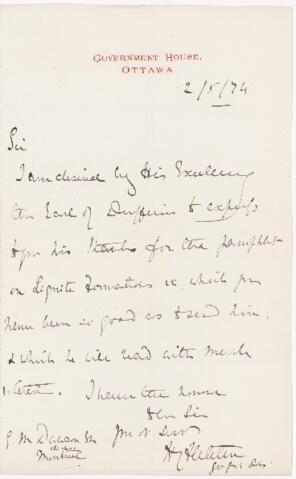 GOVERNMENT HOUSE,
OTTAWA
2/5/74
Sir
I am desired by His Excellency
the Earl of Dufferin to express
to you his thanks for the pamphlet
on Lignite Formations &c which you
have been so good as to send him,
& which he will read with much
interest. I have the honour
to be Sir
G. M. Dawson Esq
Montreal